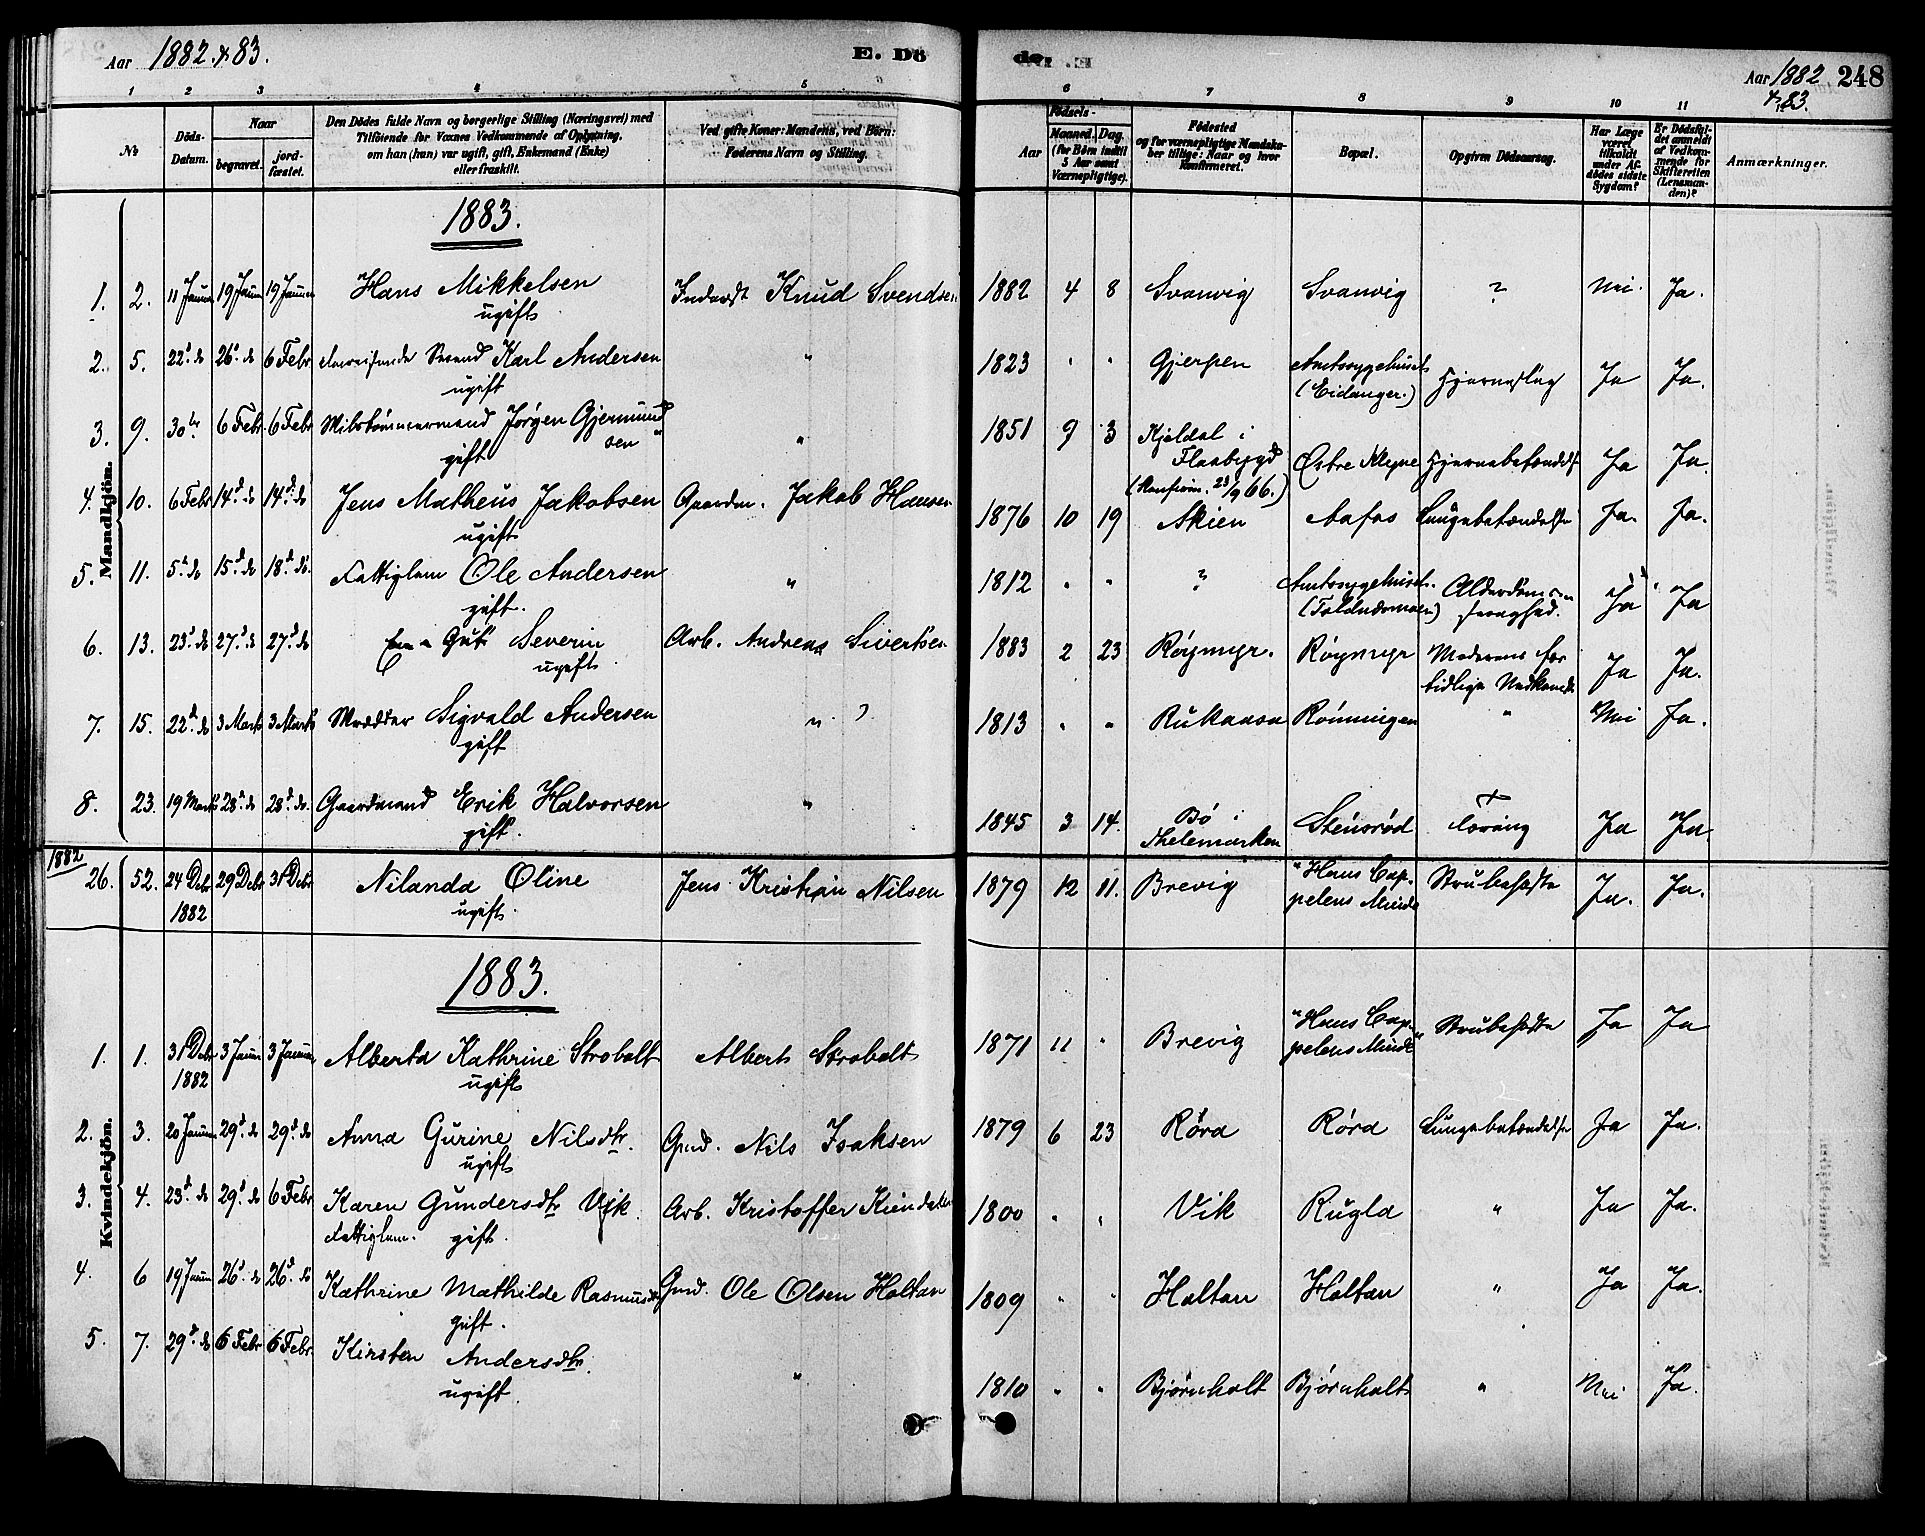 Aar 1882 & 83.
E. Dö
de. E.
Aar 1882 & 83.
248
1 2 3 4 5 6 7 8 9 10 11
No
Döds-Datum.
Naar
begravet.
jord-fæstet.
Den Dödes fulde Navn og borgerlige Stilling (Næringsvei) med
Tilföiende for Voxnes Vedkommende af Oplysning,
om han (hun) var ugift, gift, Enkemand (Enke)
eller fraskilt.
Ved gifte Koner: Mandens, ved Børn:
Faderens Navn og Stilling.
Aar
Födsels-
Maaned. Dag.
(for Börn indtil
5 Aar samt
Værnepligtige).
Födested
og for værnepligtige Mandska-
ber tillige: Naar og hvor
Konfirmeret.
Bopæl.
Opgiven Dödsaarsag.
Har Læge
været
tilkaldt
under Af-
dödes sidste
Sygdom?
Er Dödsfal-
det anmeldt
af Vedkom-
mende for
Skifteretten
(Lensman-
den)?
Anmærkninger.
Mandkjön.
1883.
1. 2. 11 Januar 19 Januar 19 Januar Hans Mikkelsen ugift Knud Svendsen 1882 4 8 Svanvig Svanvig ? Nei. Ja.
2. 5. 22d do 26d do 6 Febr Karl Andersen ugift " 1823 " " Gjerpen Amtssygehuset (Eidanger.) Hjerneslag Ja Ja.
3. 9. 30te 6 Febr. 6 Febr Jørgen Gjermundsen gift " 1851 9 3 Kjeldal i Flaabygd (Konfirm. 23/9 66.) Østre Klepne Hjernebetændelse Ja Ja.
4. 10. 6 Febr 14d do 14d do Jens Matheus Jakobsen ugift Gaardm. Jakob Hansen 1876 10 19 Skien Aafos Lungebetændelse Ja. Ja.
5. 11. 5te do 15d do 18d do. Fattiglem Ole Andersen gift. " 1812 " " ? Amtssygehuset. Alderdomssvaghed. Ja Ja
6. 13. 23d do 27d do 27d do En Gut Severin ugift Arb. Andreas Sivertsen 1883 2 23 Røymyr. Røymyr Moderens for tidlige Nedkomst Ja Ja.
7. 15. 22d do 3 Marts 3 Marts Skrædder Sigvald Andersen gift " ? 1813 " " Rukaasa Rønningen " Nei Ja.
8. 23. 19 Marts 28d do 28d do. Gaardmand Erik Halvorsen gift. " 1845 3 14. Bø i Thelemarken Stensrød Tæring Ja Ja.
Kvindekjön.
1882
26. 52. 24 Debr 1882 29 Debr 31 Debr Nilanda Oline ugift. Jens Kristian Nilsen 1879 12 11. Brevig "Hans Cappelens Minde Strubehoste Ja. Ja.
1883.
1. 1. 31 Debr 1882 3 Januar 3 Januar Alberta Kathrine Strobolt ugift Albert Strobolt 1871 11 " Brevig "Hans Cappelens Minde" Strubehoste Ja Ja
2. 3. 20 Januar 29d do 29d do Anna Gurine Nilsdtr. ugift Gmd. Nils Isaksen 1879 6 23 Rørd Rørd Lungebetændelse Ja Ja.
3. 4. 23d do 29d do 6 Febr Karen Gundersdtr Vik. Fattiglem. gift. Arb. Kristoffer 1800 " " Vik Rugla " Ja Ja.
4. 6 19 Januar 26d do 26d do Kathrine Mathilde Rasmusdtr gift. Gmd. Ole Olsen Holtan 1809 " " Holtan Holtan " Ja Ja.
5. 7. 29d do 6 Febr 6 Febr. Kirsten Andersdtr. ugift. " 1810 " " Bjørnholt Bjørnholt " Nei Ja.